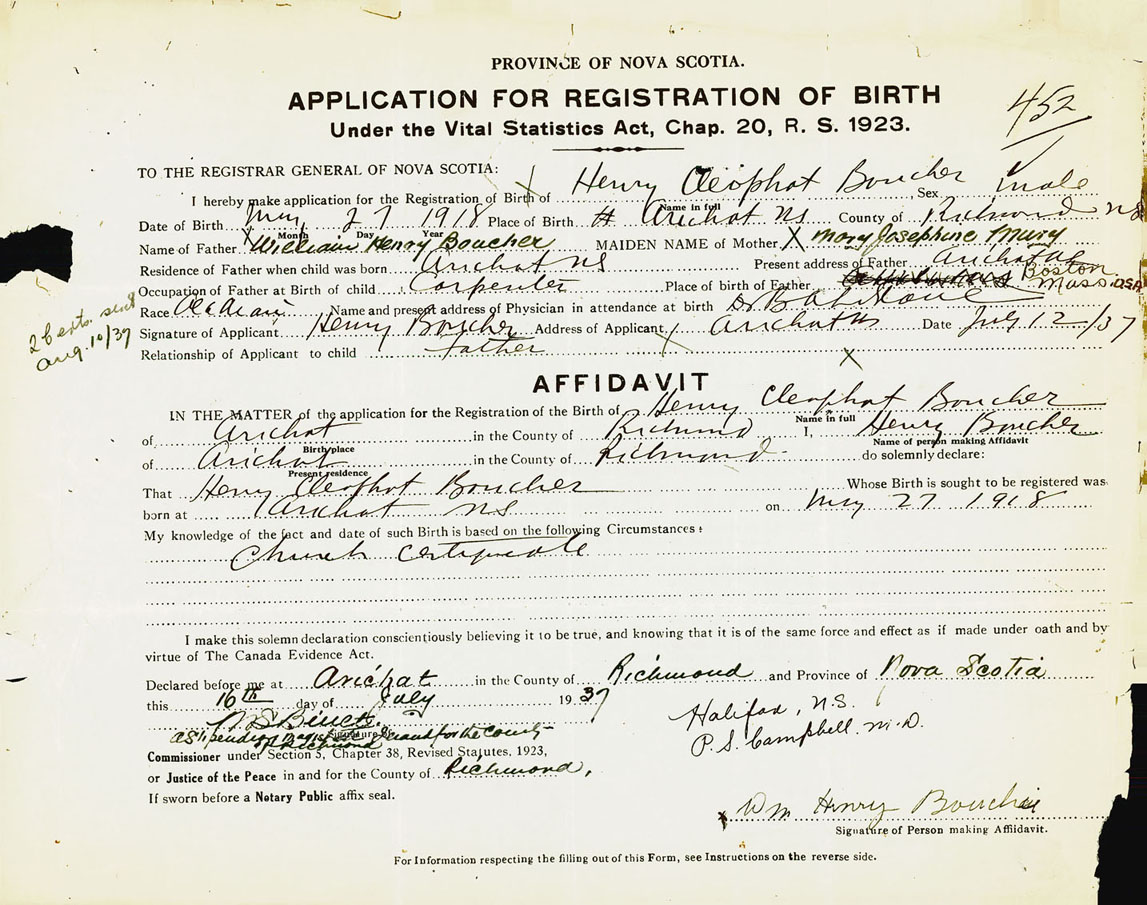 PROVINCE OF NOVA SCOTIA.
APPLICATION FOR REGISTRATION OF BIRTH
452
Under the Vital Statistics Act, Chap. 20, R. S. 1923.
TO THE REGISTRAR GENERAL OF NOVA SCOTIA:
I hereby make application for the Registration of Birth of Henry Cleophat Boucher, Sex male
Name in full
Date of Birth May 27 1918 Place of Birth Arichat NS County of Richmond NS
Month Day Year
Name of Father William Henry Boucher MAIDEN NAME of Mother X Mary Josephine Mury
Residence of Father when child was born Arichat NS Present address of Father Arichat
Occupation of Father at Birth of child Carpenter Place of birth of Father Boston Mass. USA
Race Acadian Name and present address of Physician in attendance at birth Dr
26 exts. sent
Aug. 10/37
Signature of Applicant Henry Boucher Address of Applicant Arichat NS Date July 12/37
Relationship of Applicant to child Father
X
AFFIDAVIT
IN THE MATTER of the application for the Registration of the Birth of Henry Cleophat Boucher
Name in full
of Arichat in the County of Richmond I, Henry Boucher
Birthplace Name of person making Affidavit
of Arichat in the County of Richmond do solemnly declare:
Present residence
That Henry Cleophat Boucher Whose Birth is sought to be registered was
born at Arichat NS on May 27 1918
My knowledge of the fact and date of such Birth is based on the following Circumstances:
Church Certificate
I make this solemn declaration conscientiously believing it to be true, and knowing that it is of the same force and effect as if made under oath and by
virtue of The Canada Evidence Act.
Declared before me at Arichat in the County of Richmond and Province of Nova Scotia
this 16th day of July 1937
Halifax, N.S.
P. S. Campbell M.D.
a Stipendiary in and for the County
of Richmond
Commissioner under Section 5, Chapter 38, Revised Statutes, 1923,
or Justice of the Peace in and for the County of Richmond,
If sworn before a Notary Public affix seal.
x Wm Henry Boucher
Signature of Person making Affidavit.
For Information respecting the filling out of this Form, see Instructions on the reverse side.